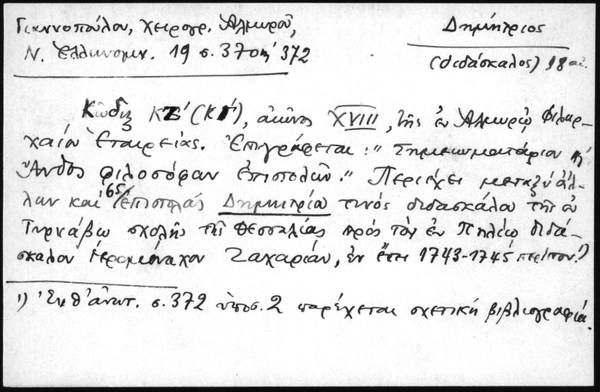 Γιαννοπούλου, Χειρογρ. Αλμυροῦ,
Ν. Ἑλληνομν. 19 σ. 37 372
Δημήτριος
(διδάσκαλος) 18 αἰ.
Κῶδιξ (ΚΓ'), αἰῶνος XVIII, τῆς ἐν Αλμυρῷ Φιλαρ-
χαίου Ἑταιρείας. Ἐπιγράφεται: "Σημειωματάριον ἢ
Ἄνθος φιλοσόφων ἐπιστολῶν." Περιέχει μεταξὺ ἄλ-
λων καὶ 65 ἐπιστολὰς Δημητρίου τινὸς διδασκάλου τῆς ἐν
Τυρνάβῳ σχολῆς τῆς Θεσσαλίας πρὸς τὸν ἐν Πηλίῳ διδά-
σκαλον ἱερομόναχον Ζαχαρίαν, ἐν ἔτει 1743-1745 περίπου.¹)
1) Ἐνθ' ἀνωτ. σ. 372 ὑποσ. 2 παρέχεται σχετικὴ βιβλιογραφία.